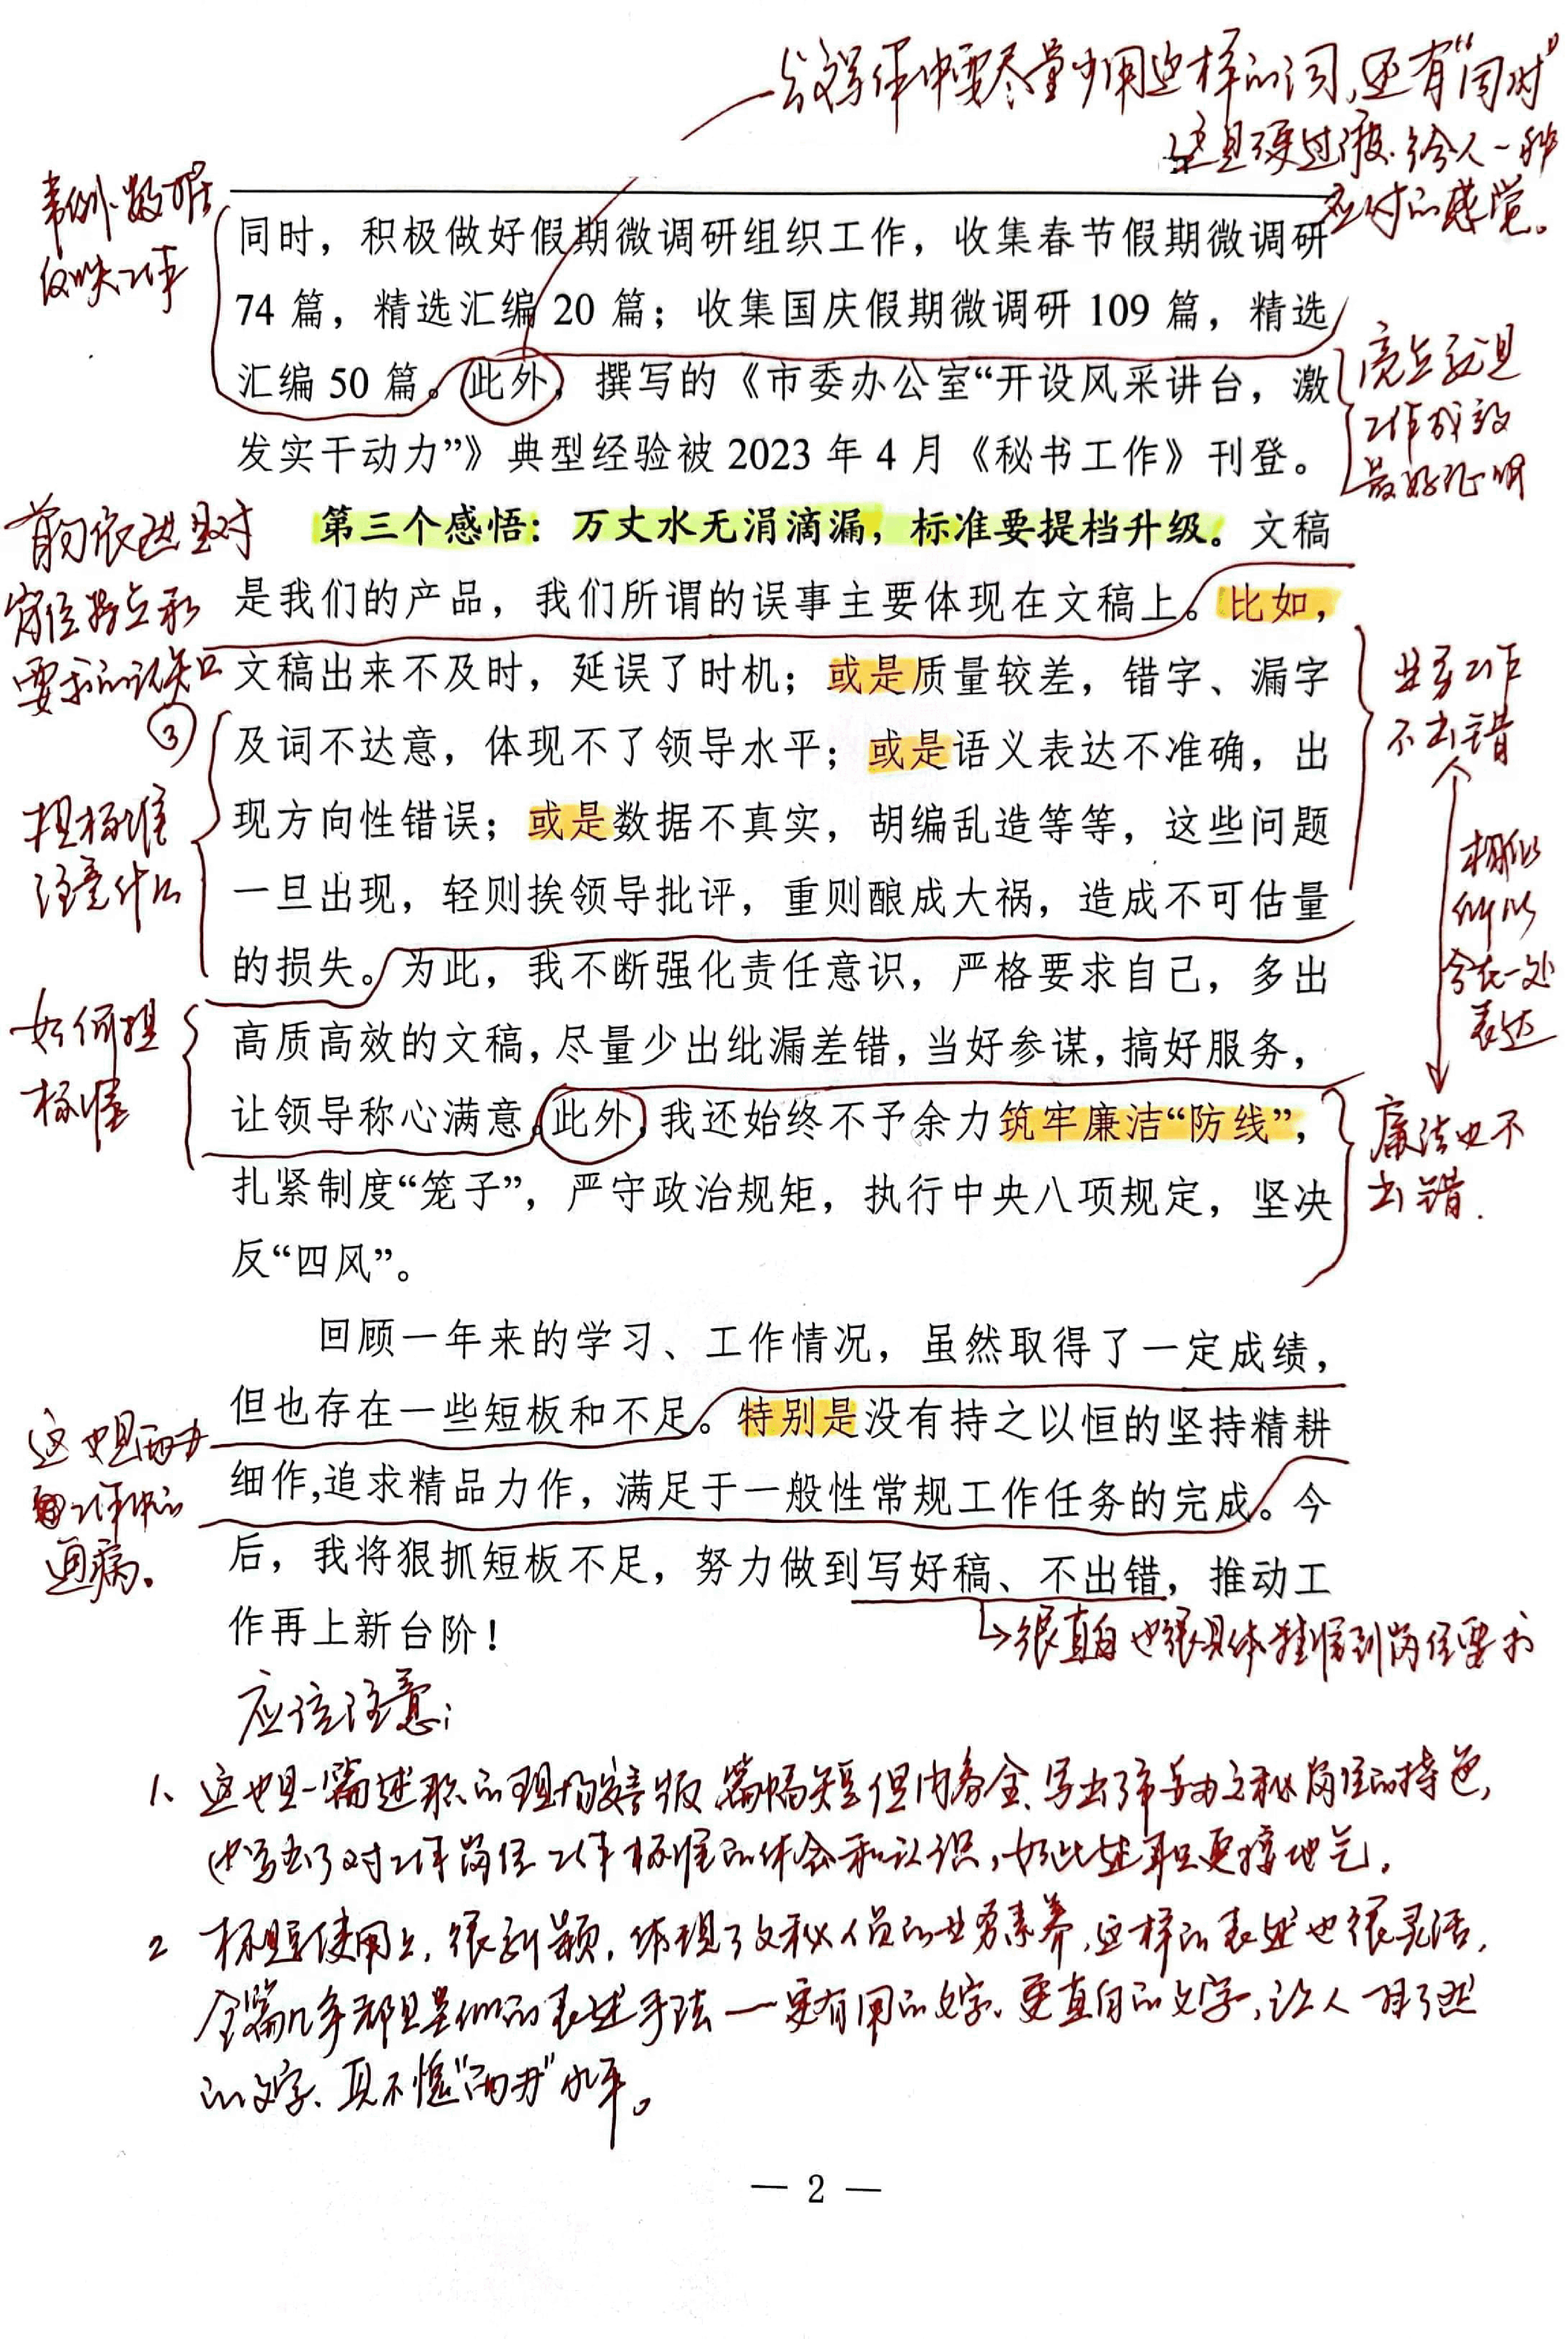 公文写作中要尽量少用这样的词,还有“同时”
这是硬过渡.给人一种
应付的感觉。
事例、数据
反映工作
同时，积极做好假期微调研组织工作，收集春节假期微调研
74 篇，精选汇编 20 篇；收集国庆假期微调研 109 篇，精选
汇编 50 篇。此外，撰写的《市委办公室“开设风采讲台，激
发实干动力”》典型经验被 2023 年 4 月《秘书工作》刊登。
亮点就是
工作成效
最好证明
第三个感悟：万丈水无涓滴漏，标准要提档升级。文稿
是我们的产品，我们所谓的误事主要体现在文稿上。比如，
文稿出来不及时，延误了时机；或是质量较差，错字、漏字
及词不达意，体现不了领导水平；或是语义表达不准确，出
现方向性错误；或是数据不真实，胡编乱造等等，这些问题
一旦出现，轻则挨领导批评，重则酿成大祸，造成不可估量
的损失。为此，我不断强化责任意识，严格要求自己，多出
高质高效的文稿，尽量少出纰漏差错，当好参谋，搞好服务，
让领导称心满意。此外，我还始终不予余力筑牢廉洁“防线”，
扎紧制度“笼子”，严守政治规矩，执行中央八项规定，坚决
反“四风”。
首句依然是对
岗位特点和
要求的认知
③
提标准
注意什么
如何提
标准
业务工作
不出错
相似
所以
合在一处
表达
廉洁也不
出错.
回顾一年来的学习、工作情况，虽然取得了一定成绩，
但也存在一些短板和不足。特别是没有持之以恒的坚持精耕
细作,追求精品力作，满足于一般性常规工作任务的完成。今
后，我将狠抓短板不足，努力做到写好稿、不出错，推动工
作再上新台阶！
这也是两办
工作中的
通病。
很直白也很具体精准到岗位要求
应该注意:
1、这也是一篇述职的理想文版,篇幅短但内容全、写出了市委办文秘岗位的特色,
也写出了对工作岗位工作标准的体会和认识,如此述职更接地气。
2 标题使用上,很新颖,体现了文秘人员的业务素养,这样的表述也很灵活,
全篇几乎都是类似的表述手法—更有用的文字、更直白的文字,让人一目了然
的文字、真不愧“两办”水平。
— 2 —